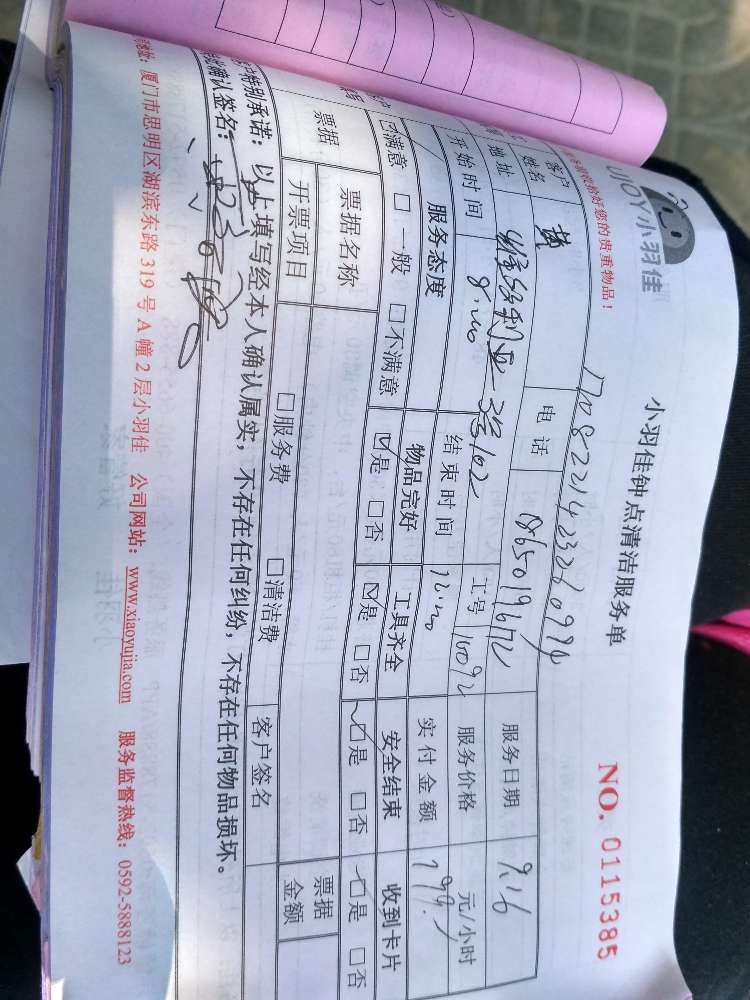 UJOY小羽佳
小羽佳钟点清洁服务单
NO. 0115385
好您的贵重物品！
客户姓名 黄 电话 18650196712 服务日期 9.16
地址 3号102 工号 16092 服务价格 元/小时
开始时间 8:00 结束时间 12:00 实付金额 199.
服务态度 物品完好 工具齐全 安全结束 收到卡片
☑满意 □一般 □不满意 ☑是 □否 ☑是 □否 ☑是 □否 ☑是 □否
票据 票据名称 票据金额
开票项目 □服务费 □清洁费 客户签名
特别承诺：以上填写经本人确认属实，不存在任何纠纷，不存在任何物品损坏。
确认签名：
地址：厦门市思明区湖滨东路319号A幢2层小羽佳 公司网站：www.xiaoyujia.com 服务监督热线：0592-5888123